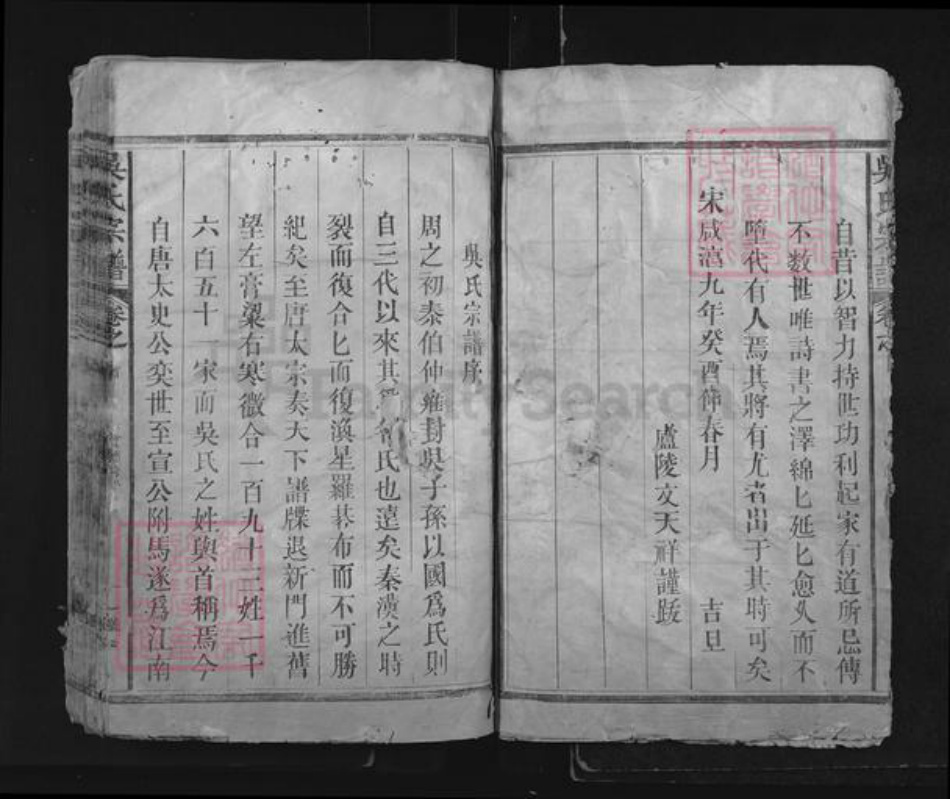 自昔以智力持世功利起家有道所忌傳
不數世唯詩書之澤綿匕延匕愈久而不
墮代有人焉其將有尤者出于其時可矣
宋咸淳九年癸酉仲春月 吉旦
廬陵文天祥謹跋
吳氏宗譜序
周之初泰伯仲雍封吳子孫以國爲氏則
自三代以來其 氏也遠矣秦漢之時
裂而復合匕而復渙星羅棊布而不可勝
紀矣至唐太宗奏天下譜牒退新門進舊
望左膏粱右寒微合一百九十三姓一千
六百五十一家而吳氏之姓與首稱焉今
自唐太史公奕世至宣公附馬遂爲江南
吳氏宗譜 卷之